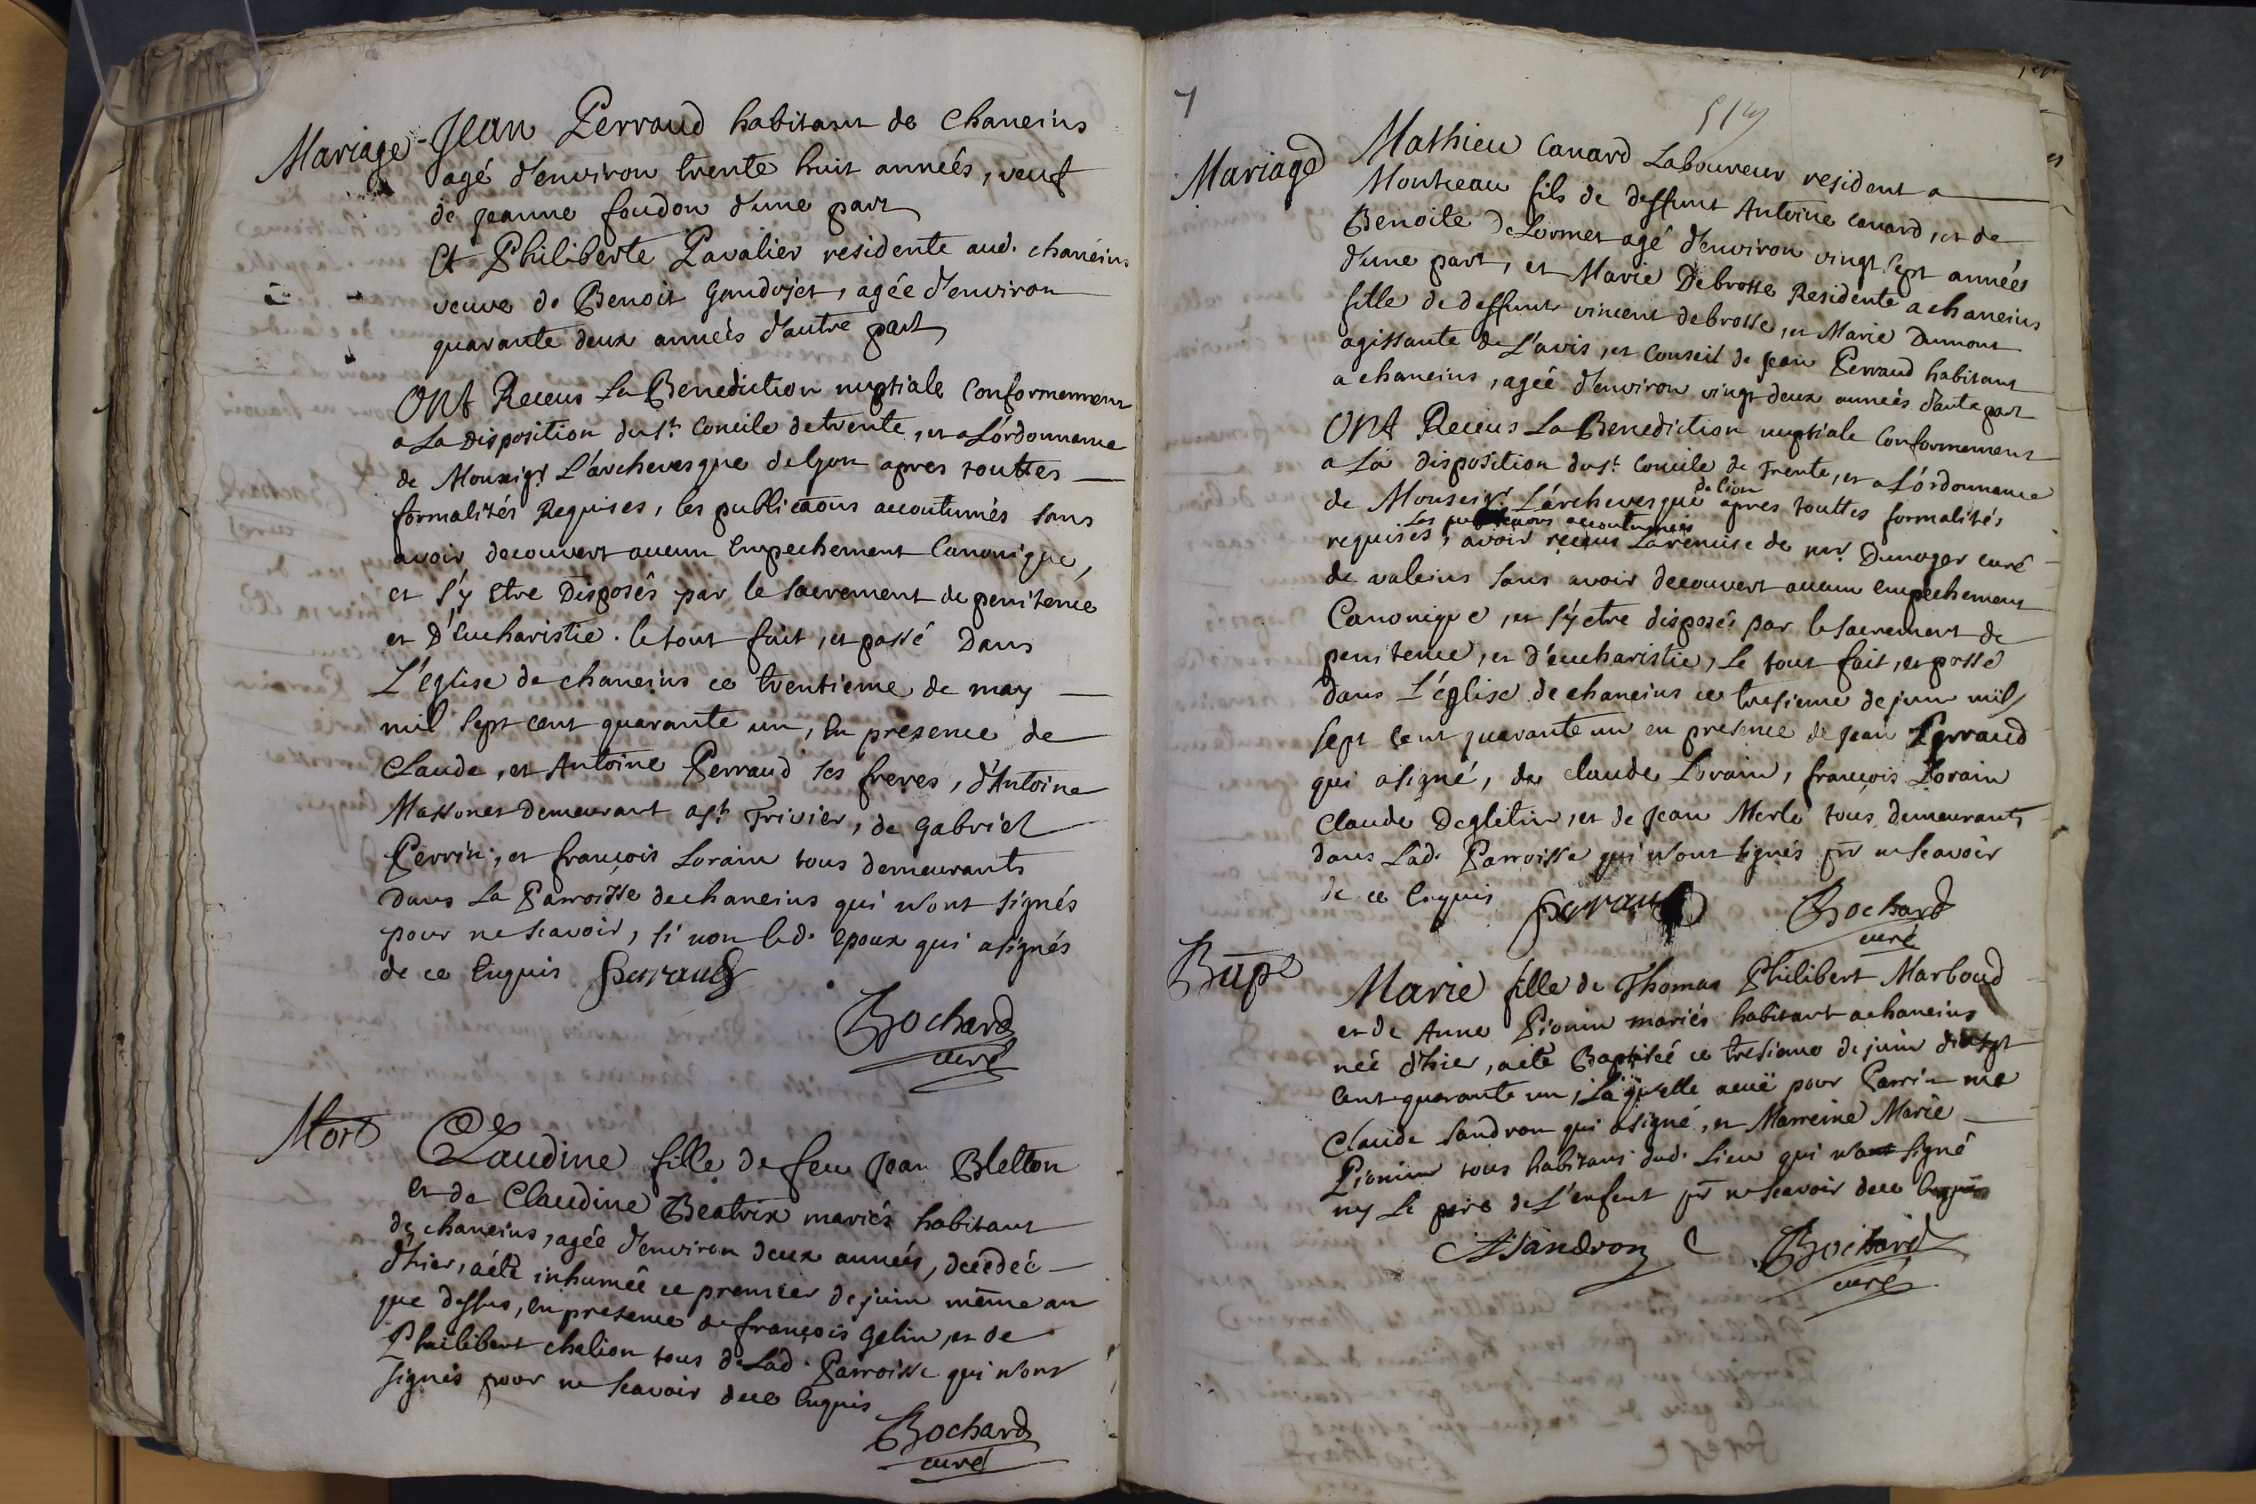 Mariage
Jean Perraud habitant de chaneins
agé d'environ trente huit années, veuf
de jeanne foudon d'une part
Et Philiberte Pavalier residente aud. chaneins
veuve de Benoit Gandojet, agée d'environ
quarante deux années d'autre part
Ont Receus La Benediction nuptiale conformement
a La disposition du st. concile de trente, et a L'órdonnance
de Monseigr. L'archevesque de lyon apres touttes
formalités Requises, les publicaõns accoutumés sans
avoir decouvert aucun Empechement Canonique,
et s'y Etre Disposés par le sacrement de penitence
et D'Eucharistie. le tout fait, et passé Dans
L'église de chaneins ce trentieme de may
mil sept cent quarante un, En presence de
Claude, et Antoine Perraud ses freres, d'Antoine
Massonet demeurant a st. Trivier, de gabriel
Perrin, et françois Lorain tous demeurants
Dans La Parroisse de chaneins qui n'ont signés
pour ne scavoir, si non led. Epoux qui a signés
de ce Enquis Perraud
Bochard
curé
Mort
Claudine fille de feu Jean Bletton
et de Claudine Beatrix mariés habitant
de chaneins, agée d'environ deux années, decedée
d'hier, a été inhumée ce premier de juin même an
que dessus, En presence de françois gelin, et de
Philibert chalion tous de Lad. Parroisse qui n'ont
signés pour ne scavoir de ce Enquis
Bochard
curé
Mariage
Mathieu Canard Laboureur resident a
Montceau fils de deffunt Antoine canard, et de
Benoite Delormes agé d'environ vingt sept années
d'une part, et Marie Debrosse Residente a chaneins
fille de deffunt vincent debrosse, et Marie Dumont
agissante de L'avis, et Conseil de jean Perraud habitant
a chaneins, agée d'environ vingt deux années d'autre part
Ont Receus La Benediction nuptiale conformement
a La disposition du st. concile de Trente, et a L'órdonnance
de Monseigr. L'archevesque de lion apres touttes formalités
requises, Les publicaons accoutumées avoir receus La remise de mr. Dunoger curé
de valeins sans avoir decouvert aucun empechement
Canonique, et s'y etre disposés par le sacrement de
penitence, et d'eucharistie, Le tout fait, et passé
dans L'église de chaneins ce tresieme de juin mil
sept cent quarante un en presence de jean Perraud
qui a signé, de claude Lorain, françois Lorain
Claude Degletin, et de jean Merle tous demeurants
dans Lad. Parroisse qui n'ont signés pr ne scavoir
de ce Enquis Perraud
Bochard
curé
Bap
Marie fille de Thomas Philibert Marboud
et de Anne Pionin mariés habitant a chaneins
née d'hier, a été Baptisée ce tresieme de juin dix sept
cent quarante un, La quelle a euë pour Parrin me
Claude Sandron qui a signé, et Marreine Marie
Pionin tous habitans dud. Lieu qui n'ont signé
ny Le pere de L'enfent pr ne scavoir de ce Enquis
Sandron
Bochard
curé